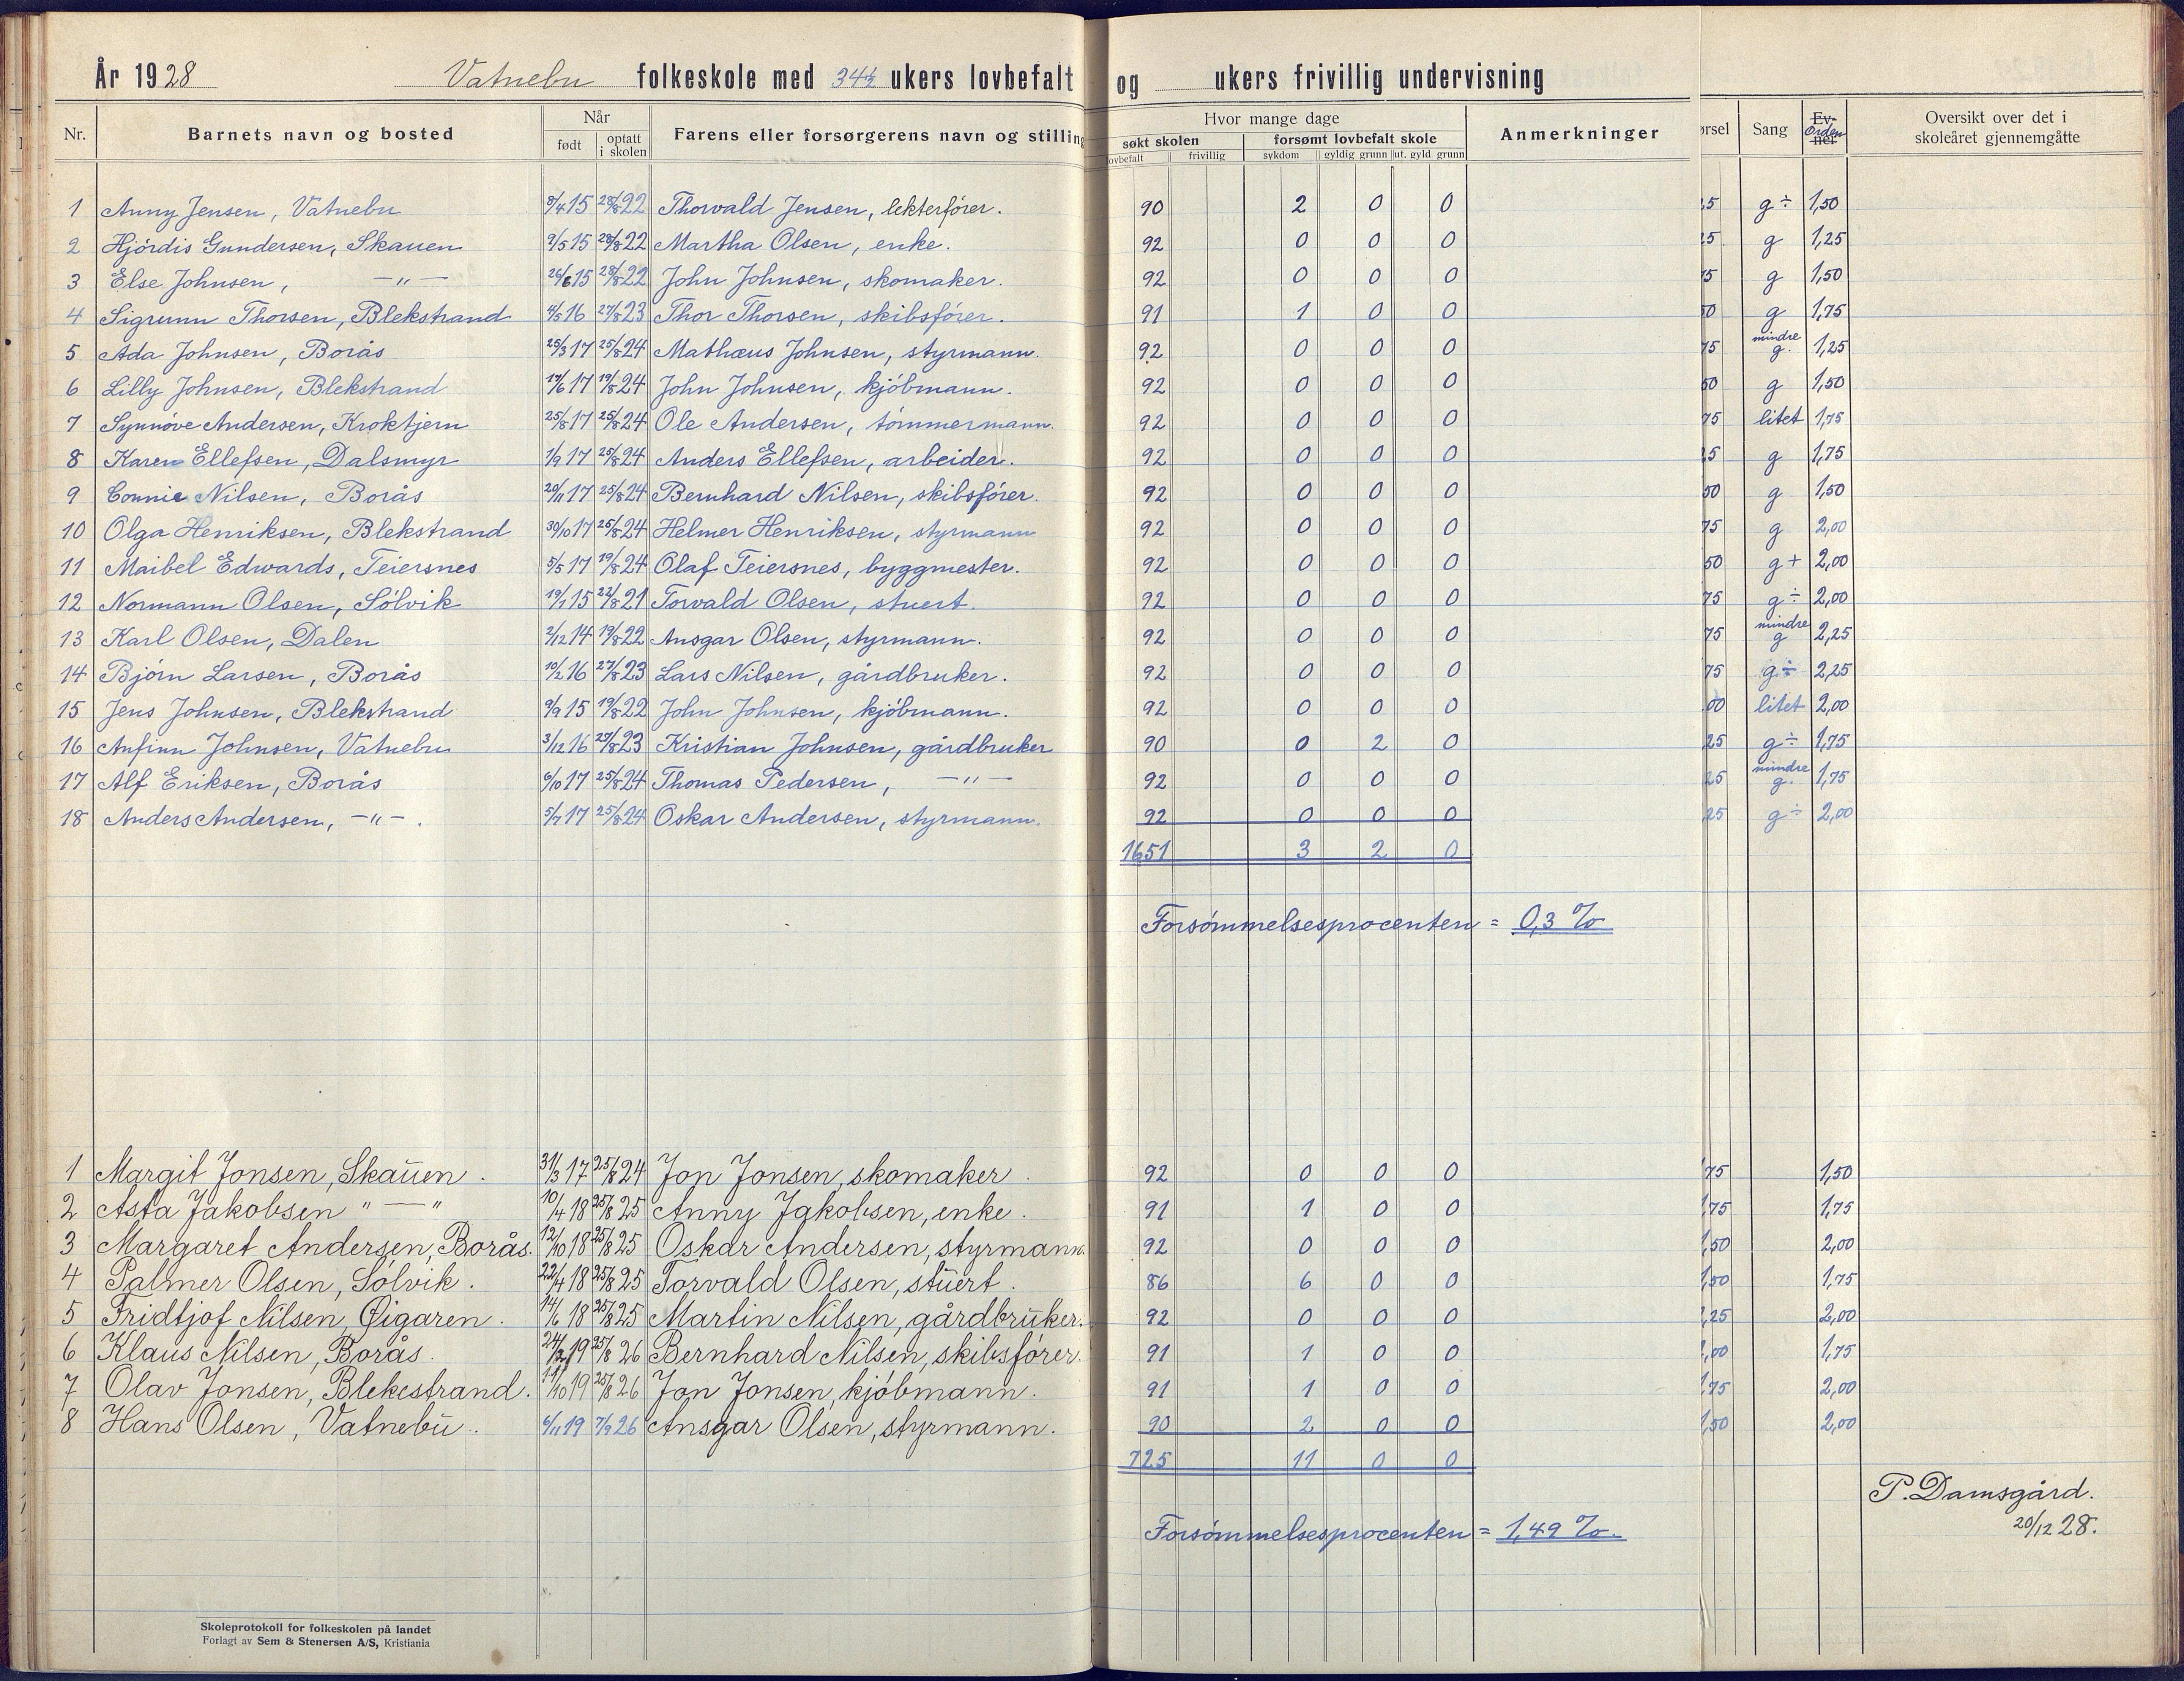 År 1928 Vatnebu folkeskole med 34½ ukers lovbefalt og ukers frivillig undervisning
Nr. Barnets navn og bosted Når født optatt i skolen Farens eller forsørgerens navn og stilling Hvor mange dage søkt skolen lovbefalt frivillig forsømt lovbefalt skole sykdom gyldig grunn ut. gyld grunn Anmerkninger ørsel Sang Ev-ner Orden Oversikt over det i skoleåret gjennemgåtte
1 Anny Jensen, Vatnebu 8/4 15 28/8 22 Thorvald Jensen, lekterfórer. 90 2 0 0 25 g÷ 1,50
2 Hjórdis Gundersen, Skauen 9/5 15 28/8 22 Martha Olsen, enke. 92 0 0 0 25 g 1,25
3 Else Johnsen, —"— 26/6 15 28/8 22 John Johnsen, skomaker. 92 0 0 0 75 g 1,50
4 Sigrunn Thorsen, Blekstrand 4/5 16 27/8 23 Thor Thorsen, skibsfórer. 91 1 0 0 50 g 1,75
5 Ada Johnsen, Borås 25/3 17 25/8 24 Mathæus Johnsen, styrmann. 92 0 0 0 75 mindre g. 1,25
6 Lilly Johnsen, Blekstrand 17/6 17 19/8 24 John Johnsen, kjóbmann. 92 0 0 0 50 g 1,50
7 Synnóve Andersen, Kroktjern 25/8 17 25/8 24 Ole Andersen, tómmermann. 92 0 0 0 75 litet 1,75
8 Karen Ellefsen, Dalsmyr 1/9 17 25/8 24 Anders Ellefsen, arbeider. 92 0 0 0 25 g 1,75
9 Connie Nilsen, Borås 20/11 17 25/8 24 Bernhard Nilsen, skibsfórer. 92 0 0 0 50 g 1,50
10 Olga Henriksen, Blekstrand 30/10 17 25/8 24 Helmer Henriksen, styrmann 92 0 0 0 75 g 2,00
11 Maibel Edwards, Teiersnes 5/5 17 19/8 24 Olaf Teiersnes, byggmester. 92 0 0 0 50 g+ 2,00
12 Normann Olsen, Sólvik 19/1 15 22/8 21 Torvald Olsen, stuert. 92 0 0 0 75 g÷ 2,00
13 Karl Olsen, Dalen 2/12 14 19/8 22 Ansgar Olsen, styrmann. 92 0 0 0 75 mindre g 2,25
14 Bjórn Larsen, Borås 10/2 16 27/8 23 Lars Nilsen, gårdbruker. 92 0 0 0 75 g÷ 2,25
15 Jens Johnsen, Blekstrand 9/9 15 19/8 22 John Johnsen, kjóbmann. 92 0 0 0 00 litet 2,00
16 Anfinn Johnsen, Vatnebu 3/12 16 27/8 23 Kristian Johnsen, gårdbruker 90 0 2 0 25 g÷ 1,75
17 Alf Eriksen, Borås 6/10 17 25/8 24 Thomas Pedersen, —"— 92 0 0 0 25 mindre g. 1,75
18 Anders Andersen, —"—. 5/7 17 25/8 24 Oskar Andersen, styrmann. 92 0 0 0 25 g÷ 2,00
1651 3 2 0
Forsómmelsesprocenten = 0,3 %
1 Margit Jonsen, Skauen. 31/3 17 25/8 24 Jon Jonsen, skomaker. 92 0 0 0 75 1,50
2 Asta Jakobsen "—" 10/4 18 25/8 25 Anny Jakobsen, enke. 91 1 0 0 75 1,75
3 Margaret Andersen, Borås. 12/10 18 25/8 25 Oskar Andersen, styrmann. 92 0 0 0 50 2,00
4 Palmer Olsen, Sólvik. 22/4 18 25/8 25 Torvald Olsen, stuert. 86 6 0 0 50 1,75
5 Fridtjof Nilsen, Øigaren. 14/6 18 25/8 25 Martin Nilsen, gårdbruker. 92 0 0 0 25 2,00
6 Klaus Nilsen, Borås. 24/2 19 25/8 26 Bernhard Nilsen, skibsfórer. 91 1 0 0 00 1,75
7 Olav Jonsen, Blekestrand. 11/10 19 25/8 26 Jon Jonsen, kjóbmann. 91 1 0 0 75 2,00
8 Hans Olsen, Vatnebu. 6/11 19 7/9 26 Ansgar Olsen, styrmann. 90 2 0 0 50 2,00
725 11 0 0
P. Damsgård.
20/12 28.
Forsómmelsesprocenten = 1,49 %.
Skoleprotokoll for folkeskolen på landet
Forlagt av Sem & Stenersen A/S, Kristiania